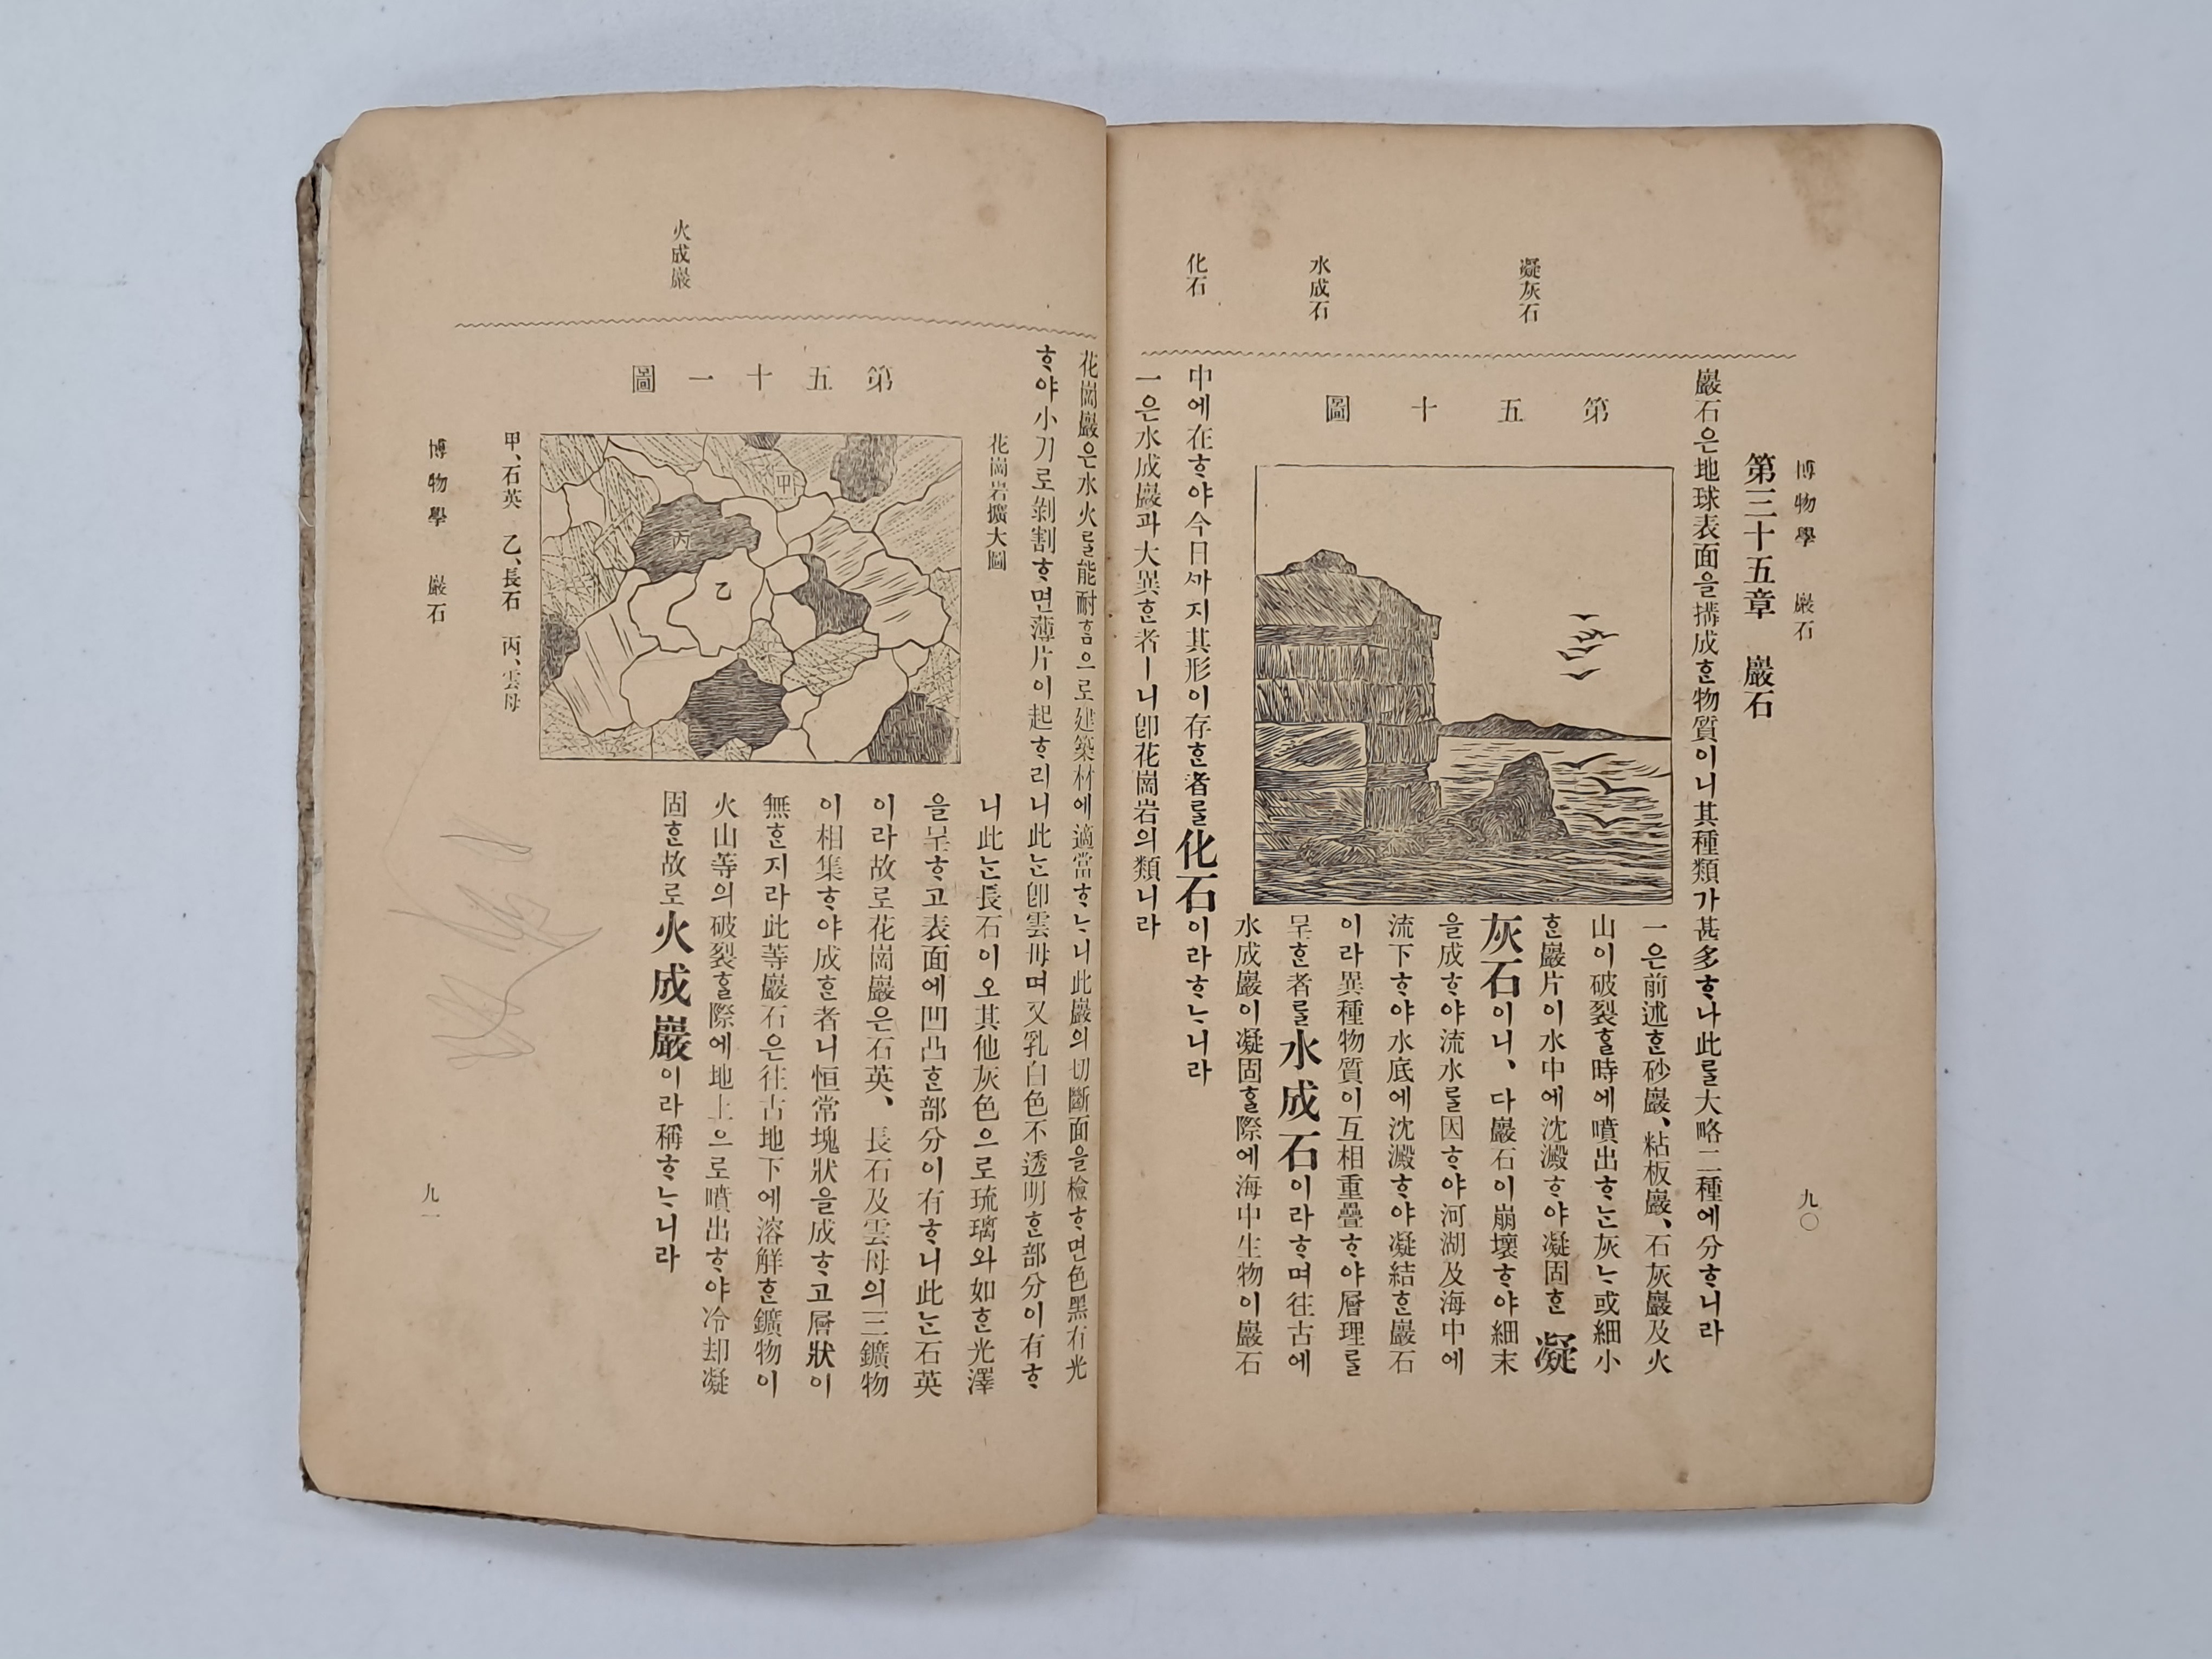 博物學 巖石
九〇
凝灰石
水成石
化石
第三十五章 巖石
巖石은地球表面을搆成ᄒᆞᆫ物質이니其種類가甚多ᄒᆞ나此를大略二種에分ᄒᆞ니라
第五十圖
一은前述ᄒᆞᆫ砂巖、粘板巖、石灰巖及火
山이破裂ᄒᆞᆯ時에噴出ᄒᆞᄂᆞᆫ灰ᄂᆞ或細小
ᄒᆞᆫ巖片이水中에沈澱ᄒᆞ야凝固ᄒᆞᆫ凝
灰石이니、다巖石이崩壞ᄒᆞ야細末
을成ᄒᆞ야流水를因ᄒᆞ야河湖及海中에
流下ᄒᆞ야水底에沈澱ᄒᆞ야凝結ᄒᆞᆫ巖石
이라異種物質이互相重疊ᄒᆞ야層理를
呈ᄒᆞᆫ者를水成石이라ᄒᆞ며往古에
水成巖이凝固ᄒᆞᆯ際에海中生物이巖石
中에在ᄒᆞ야今日ᄭᆞ지其形이存ᄒᆞᆫ者를化石이라ᄒᆞᄂᆞ니라
一은水成巖과大異ᄒᆞᆫ者ㅣ니卽花崗岩의類니라
火成巖
花崗巖은水火를能耐ᄒᆞᆷ으로建築材에適當ᄒᆞᄂᆞ니此巖의切斷面을檢ᄒᆞ면色黑有光
ᄒᆞ야小刀로剝割ᄒᆞ면薄片이起ᄒᆞ리니此ᄂᆞᆫ卽雲母며又乳白色不透明ᄒᆞᆫ部分이有ᄒᆞ
第五十一圖
花崗岩擴大圖
甲
乙
丙
甲、石英 乙、長石 丙、雲母
니此ᄂᆞᆫ長石이오其他灰色으로琉璃와如ᄒᆞᆫ光澤
을呈ᄒᆞ고表面에凹凸ᄒᆞᆫ部分이有ᄒᆞ니此ᄂᆞᆫ石英
이라故로花崗巖은石英、長石及雲母의三鑛物
이相集ᄒᆞ야成ᄒᆞᆫ者니恒常塊狀을成ᄒᆞ고層狀이
無ᄒᆞᆫ지라此等巖石은往古地下에溶解ᄒᆞᆫ鑛物이
火山等의破裂ᄒᆞᆯ際에地上으로噴出ᄒᆞ야冷却凝
固ᄒᆞᆫ故로火成巖이라稱ᄒᆞᄂᆞ니라
博物學 巖石
九一